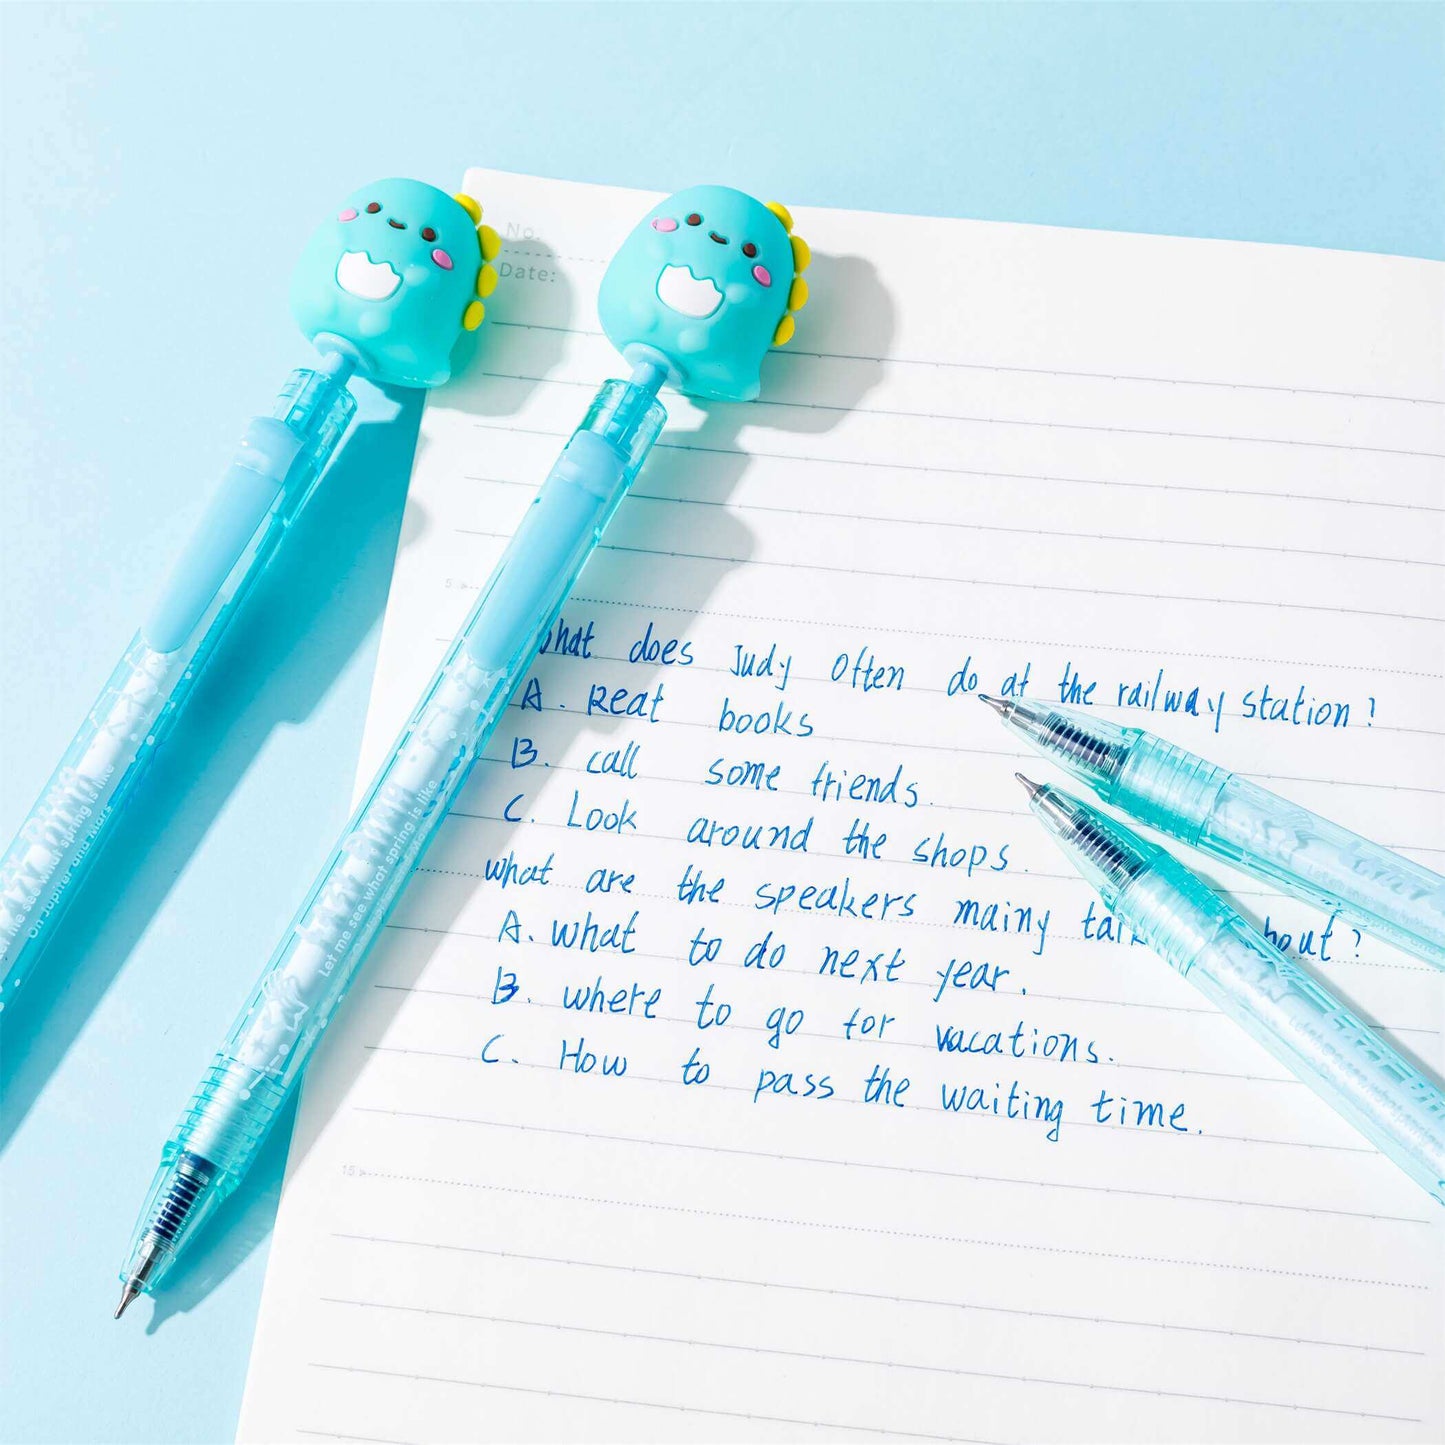 No.
Date:
5
what does Judy Often do at the railway station?
A. Reat books
B. call some friends.
C. Look around the shops.
what are the speakers mainy bout?
A. what to do next year.
B. where to go for vacations.
C. How to pass the waiting time.
15
Let me see what spring is like
On Jupiter and Mars
Let me see what spring is like